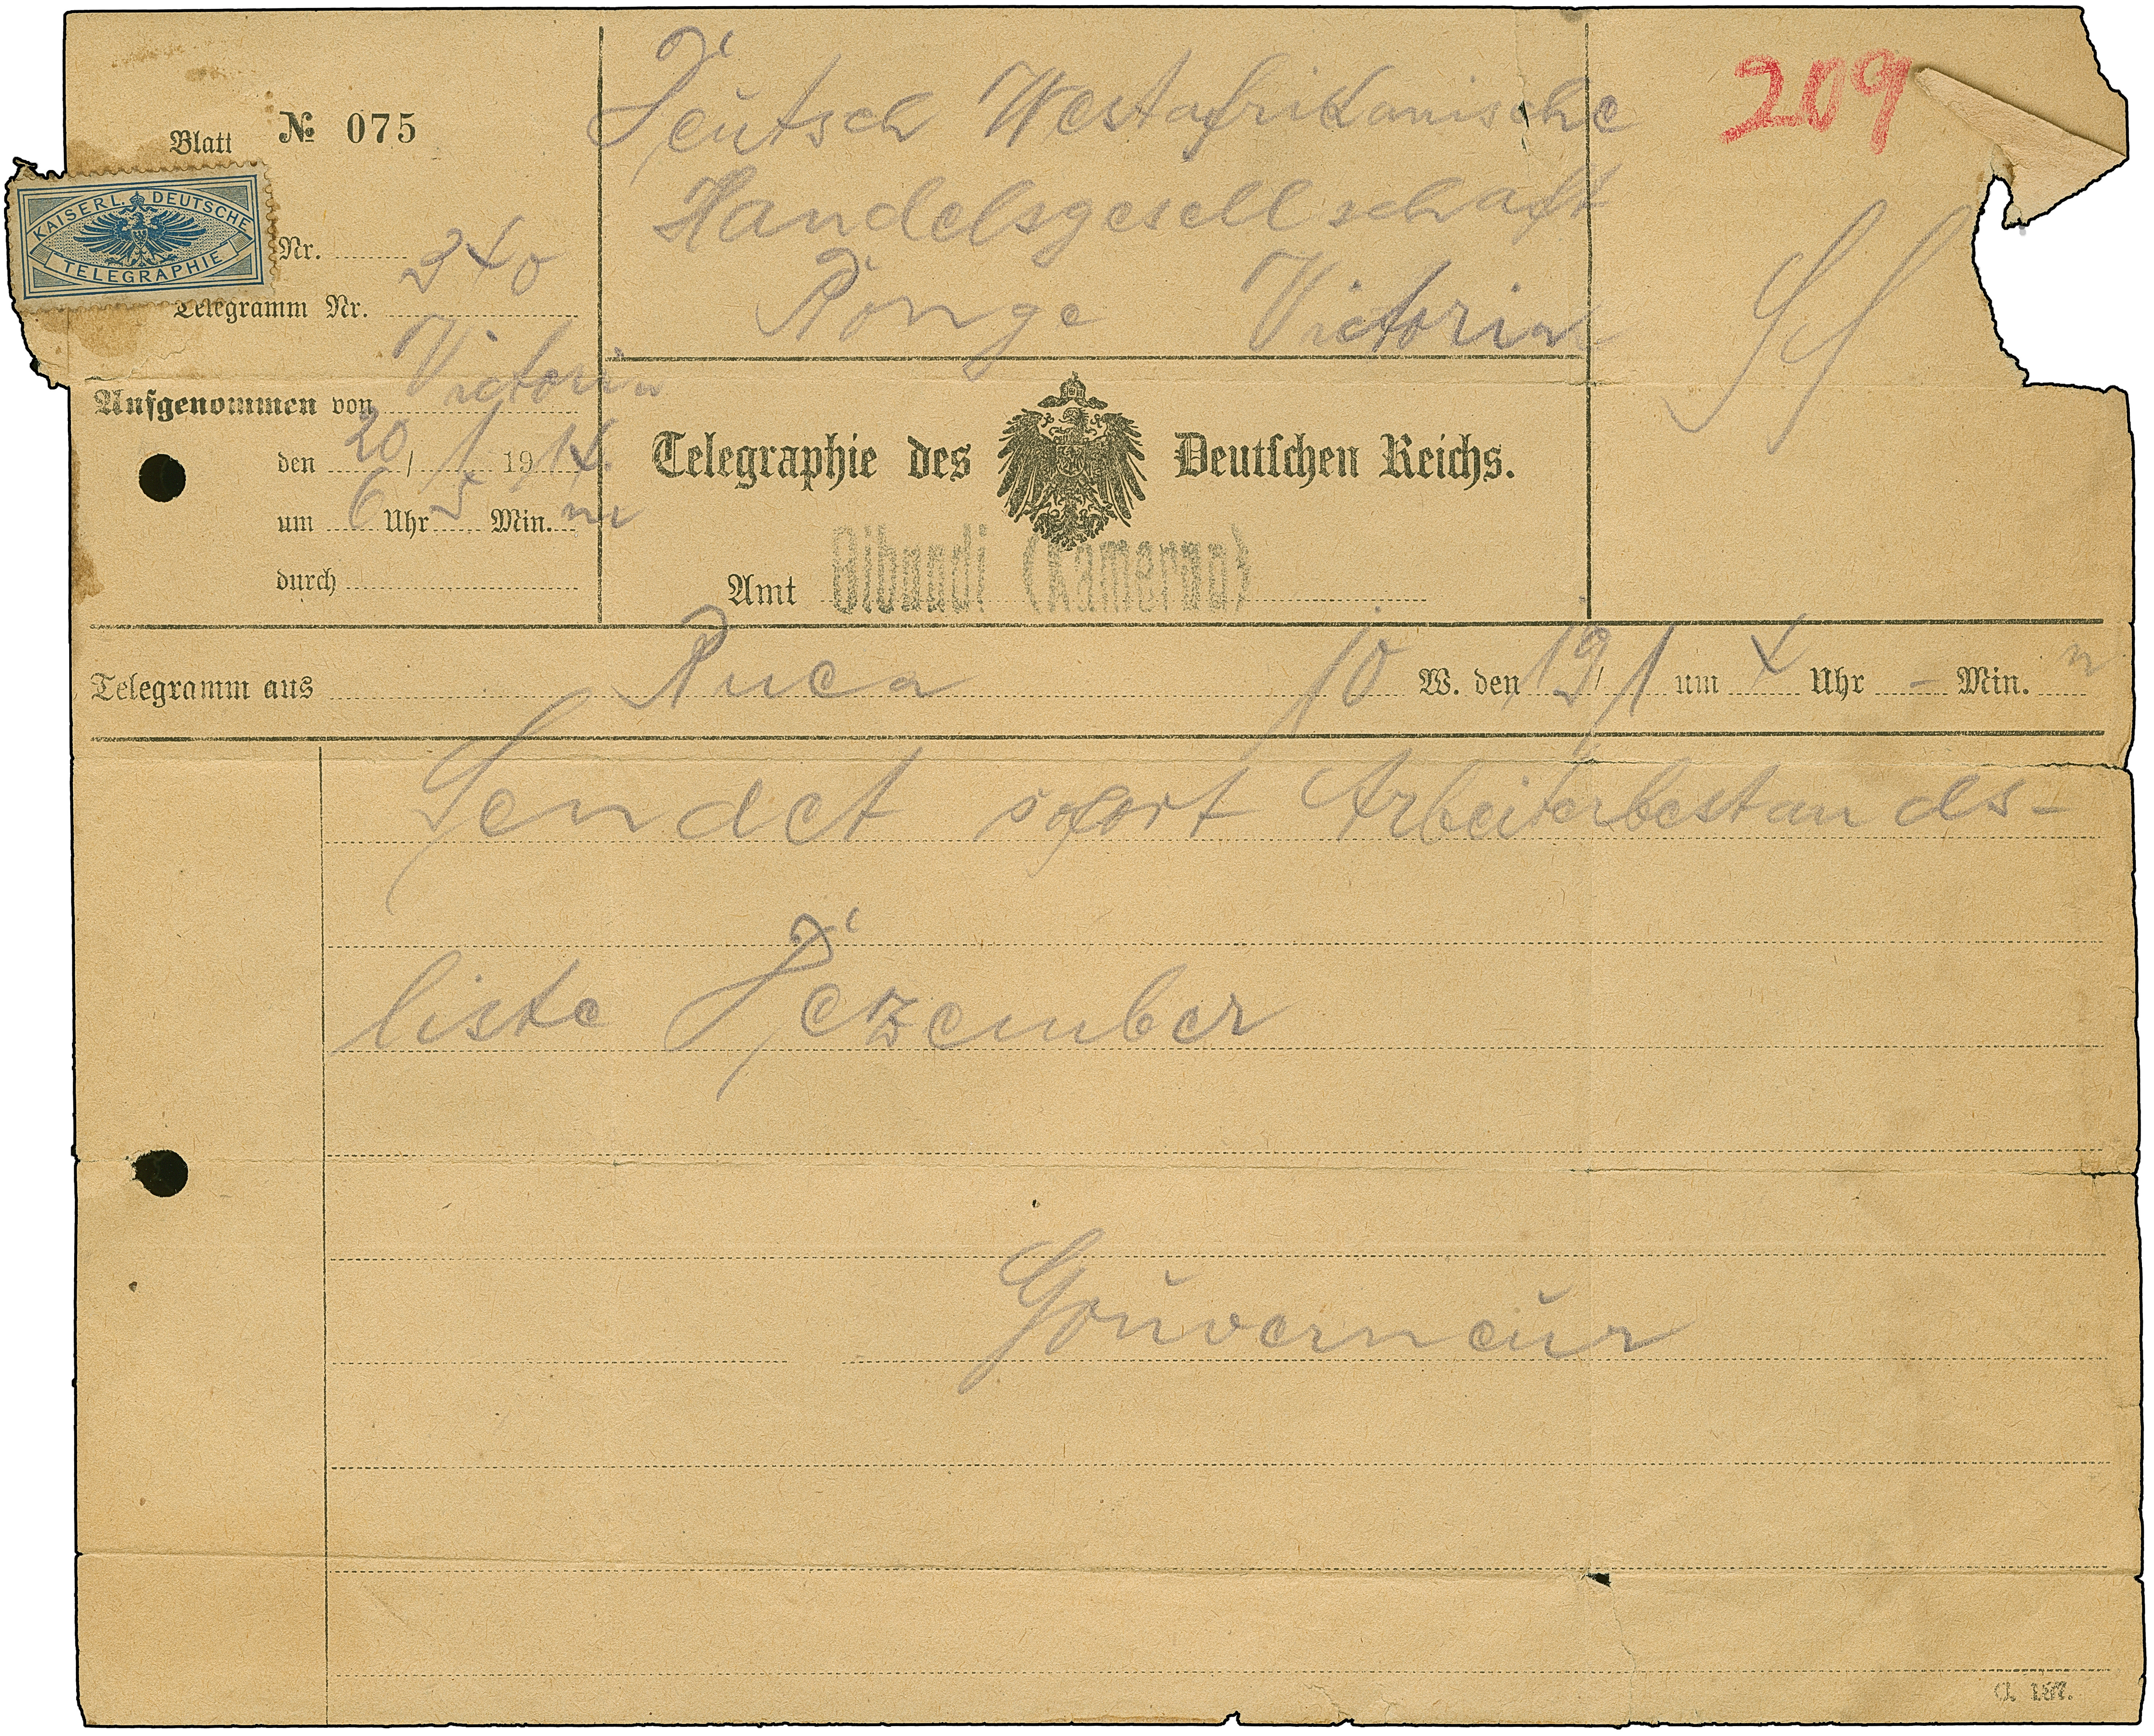 Blatt № 075
KAISERL. DEUTSCHE
TELEGRAPHIE
Nr.
340
Telegramm Nr.
Deutsch Westafrikanische
Handelsgesellschaft
Victoria
209
Aufgenommen von Victoria
den 20 / 1 1914.
um 6 Uhr 5 Min.
durch
Telegraphie des Deutschen Reichs.
Amt Bibundi (Kamerun)
Telegramm aus Buea 10 W. den 19/1 um 4 Uhr - Min. n
Sendet sofort Arbeiterbestands-
liste Dezember
Gouverneur
C. 187.